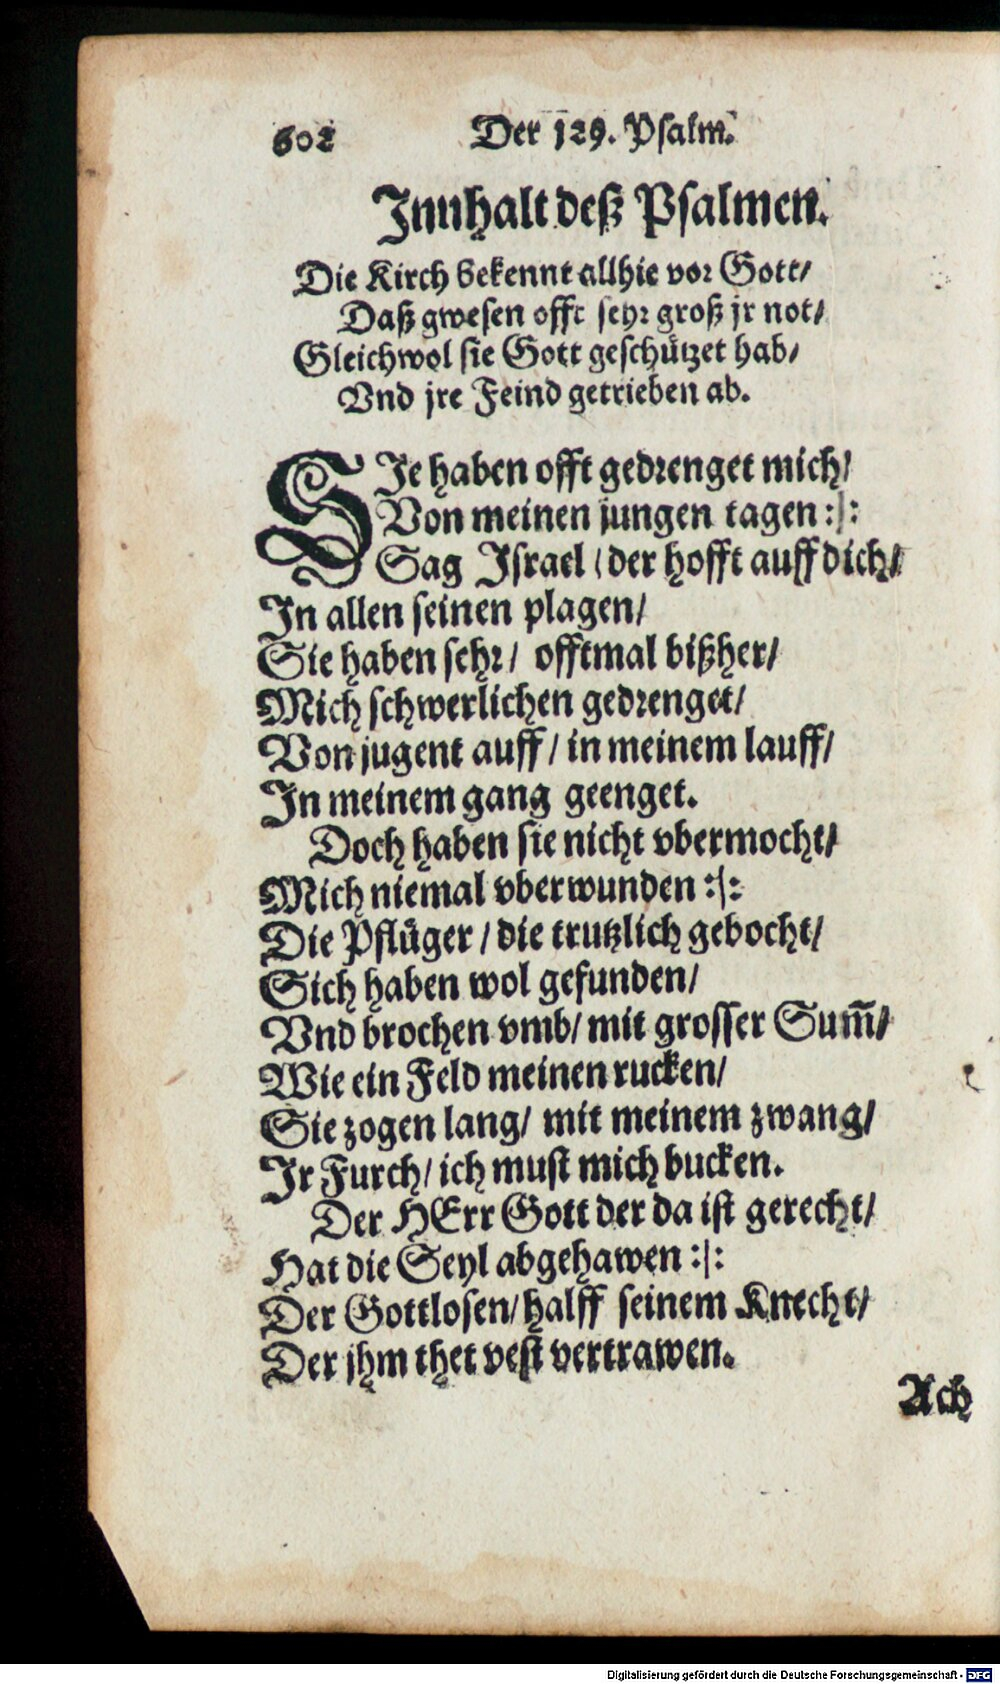 602 Der 129. Psalm.
Innhalt deß Psalmen.
Die Kirch bekennt allhie vor Gott/
Daß gwesen offt sehr groß jr not/
Gleichwol sie Gott geschützet hab/
Vnd jre Feind getrieben ab.
SIe haben offt gedrenget mich/
Von meinen jungen tagen :|:
Sag Israel / der hofft auff dich/
In allen seinen plagen/
Sie haben sehr / offtmal bißher/
Mich schwerlichen gedrenget/
Von jugent auff / in meinem lauff/
In meinem gang geenget.
Doch haben sie nicht vbermocht/
Mich niemal vberwunden :|:
Die Pflüger / die trutzlich gebocht/
Sich haben wol gefunden/
Vnd brochen vmb/ mit grosser Sum̃/
Wie ein Feld meinen rucken/
Sie zogen lang/ mit meinem zwang/
Ir Furch/ ich must mich bucken.
Der HErr Gott der da ist gerecht/
Hat die Seyl abgehawen :|:
Der Gottlosen/ halff seinem Knecht/
Der jhm thet vest vertrawen.
Ach
Digitalisierung gefördert durch die Deutsche Forschungsgemeinschaft - DFG